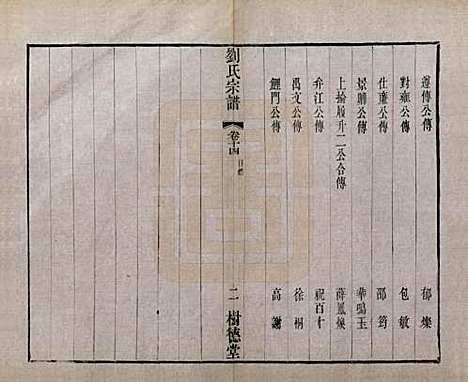 遵傳公傳 郁燦
對雍公傳 包敏
仕廉公傳 邵筠
景晴公傳 華鳴玉
上掄履升二公合傳 薛鳳㷼
弁江公傳 祝百十
禹文公傳 徐桐
鯉門公傳 高謝
劉氏宗譜 卷十四 目錄 二 樹德堂